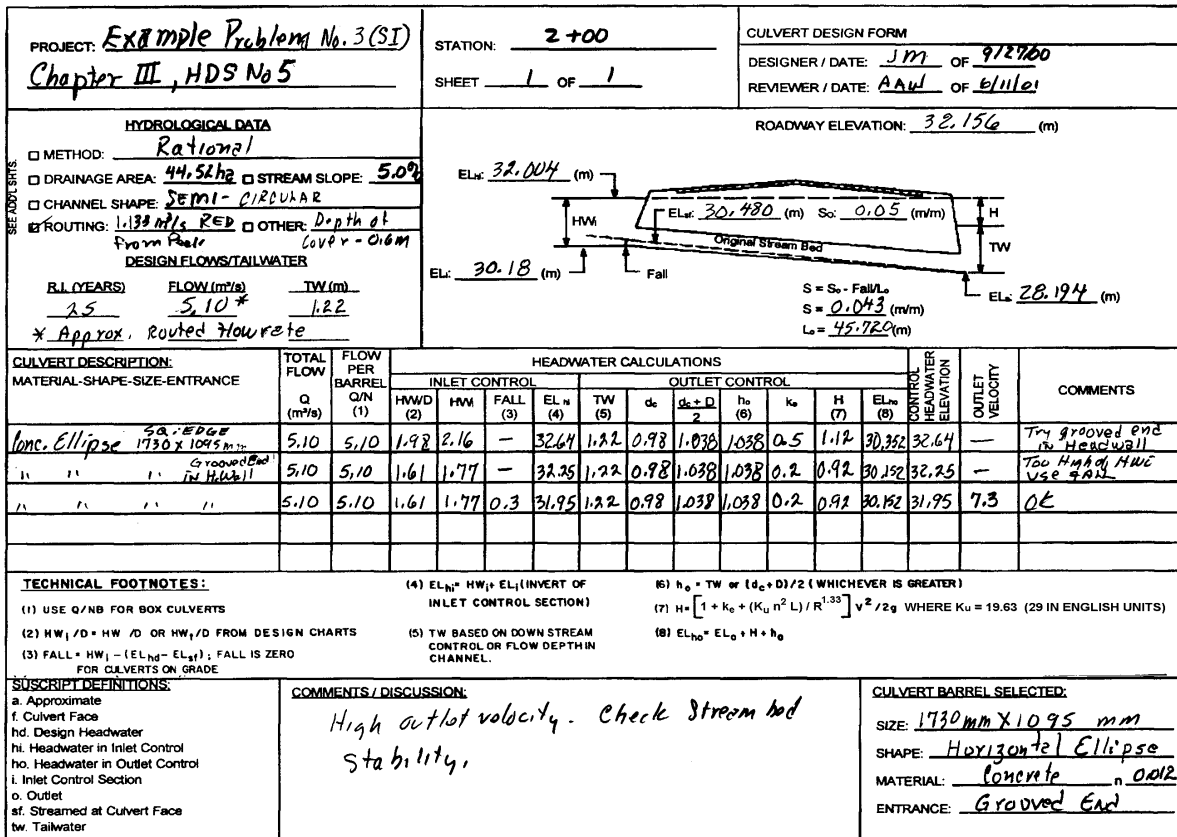 PROJECT: Example Problem No. 3 (SI)
Chapter III, HDS No 5
STATION: 2+00
SHEET 1 OF 1
CULVERT DESIGN FORM
DESIGNER / DATE: JM OF 9/27/00
REVIEWER / DATE: AAW OF 6/11/01
SEE ADD'L SHTS.
HYDROLOGICAL DATA
□ METHOD: Rational
□ DRAINAGE AREA: 44.52ha □ STREAM SLOPE: 5.0%
□ CHANNEL SHAPE: SEMI-CIRCULAR
☑ ROUTING: 1.133 m³/s RED □ OTHER: Depth of
From Peak Cover - 0.6m
DESIGN FLOWS/TAILWATER
R.I. (YEARS) FLOW (m³/s) TW (m)
25 5.10* 1.22
* Approx. Routed Flowrate
ROADWAY ELEVATION: 32.156 (m)
ELhi: 32.004 (m)
HWi
ELsf: 30.480 (m) So: 0.05 (m/m)
H
TW
Original Stream Bed
ELi: 30.18 (m)
Fall
S = So - Fall/Lo
S = 0.043 (m/m)
Lo = 45.720 (m)
ELo: 28.194 (m)
CULVERT DESCRIPTION:
MATERIAL-SHAPE-SIZE-ENTRANCE
TOTAL FLOW Q (m³/s)
FLOW PER BARREL Q/N (1)
HEADWATER CALCULATIONS
INLET CONTROL
OUTLET CONTROL
HWi/D (2) HWi FALL (3) EL hi (4) TW (5) dc dc + D / 2 ho (6) ke H (7) ELho (8)
CONTROL HEADWATER ELEVATION
OUTLET VELOCITY
COMMENTS
Conc. Ellipse SQ. EDGE 1730 x 1095mm 5.10 5.10 1.98 2.16 — 32.64 1.22 0.98 1.038 1.038 0.5 1.12 30.352 32.64 — Try grooved end in Headwall
" " " Grooved End in H.Wall 5.10 5.10 1.61 1.77 — 32.25 1.22 0.98 1.038 1.038 0.2 0.92 30.152 32.25 — Too High of HWi USE FALL
" " " " 5.10 5.10 1.61 1.77 0.3 31.95 1.22 0.98 1.038 1.038 0.2 0.92 30.152 31.95 7.3 OK
TECHNICAL FOOTNOTES:
(1) USE Q/NB FOR BOX CULVERTS
(2) HWi /D = HW /D OR HWi/D FROM DESIGN CHARTS
(3) FALL = HWi - (ELhd - ELsf); FALL IS ZERO
FOR CULVERTS ON GRADE
(4) ELhi = HWi + ELi (INVERT OF
INLET CONTROL SECTION)
(5) TW BASED ON DOWN STREAM
CONTROL OR FLOW DEPTH IN
CHANNEL.
(6) ho = TW or (dc + D)/2 (WHICHEVER IS GREATER)
(7) H = [1 + ke + (Ku n² L) / R^1.33] v² /2g WHERE Ku = 19.63 (29 IN ENGLISH UNITS)
(8) ELho = ELo + H + ho
SUSCRIPT DEFINITIONS:
a. Approximate
f. Culvert Face
hd. Design Headwater
hi. Headwater in Inlet Control
ho. Headwater in Outlet Control
i. Inlet Control Section
o. Outlet
sf. Streamed at Culvert Face
tw. Tailwater
COMMENTS / DISCUSSION:
High outlet velocity. Check Stream bed
stability.
CULVERT BARREL SELECTED:
SIZE: 1730mm X 1095 mm
SHAPE: Horizontal Ellipse
MATERIAL: Concrete n 0.012
ENTRANCE: Grooved End